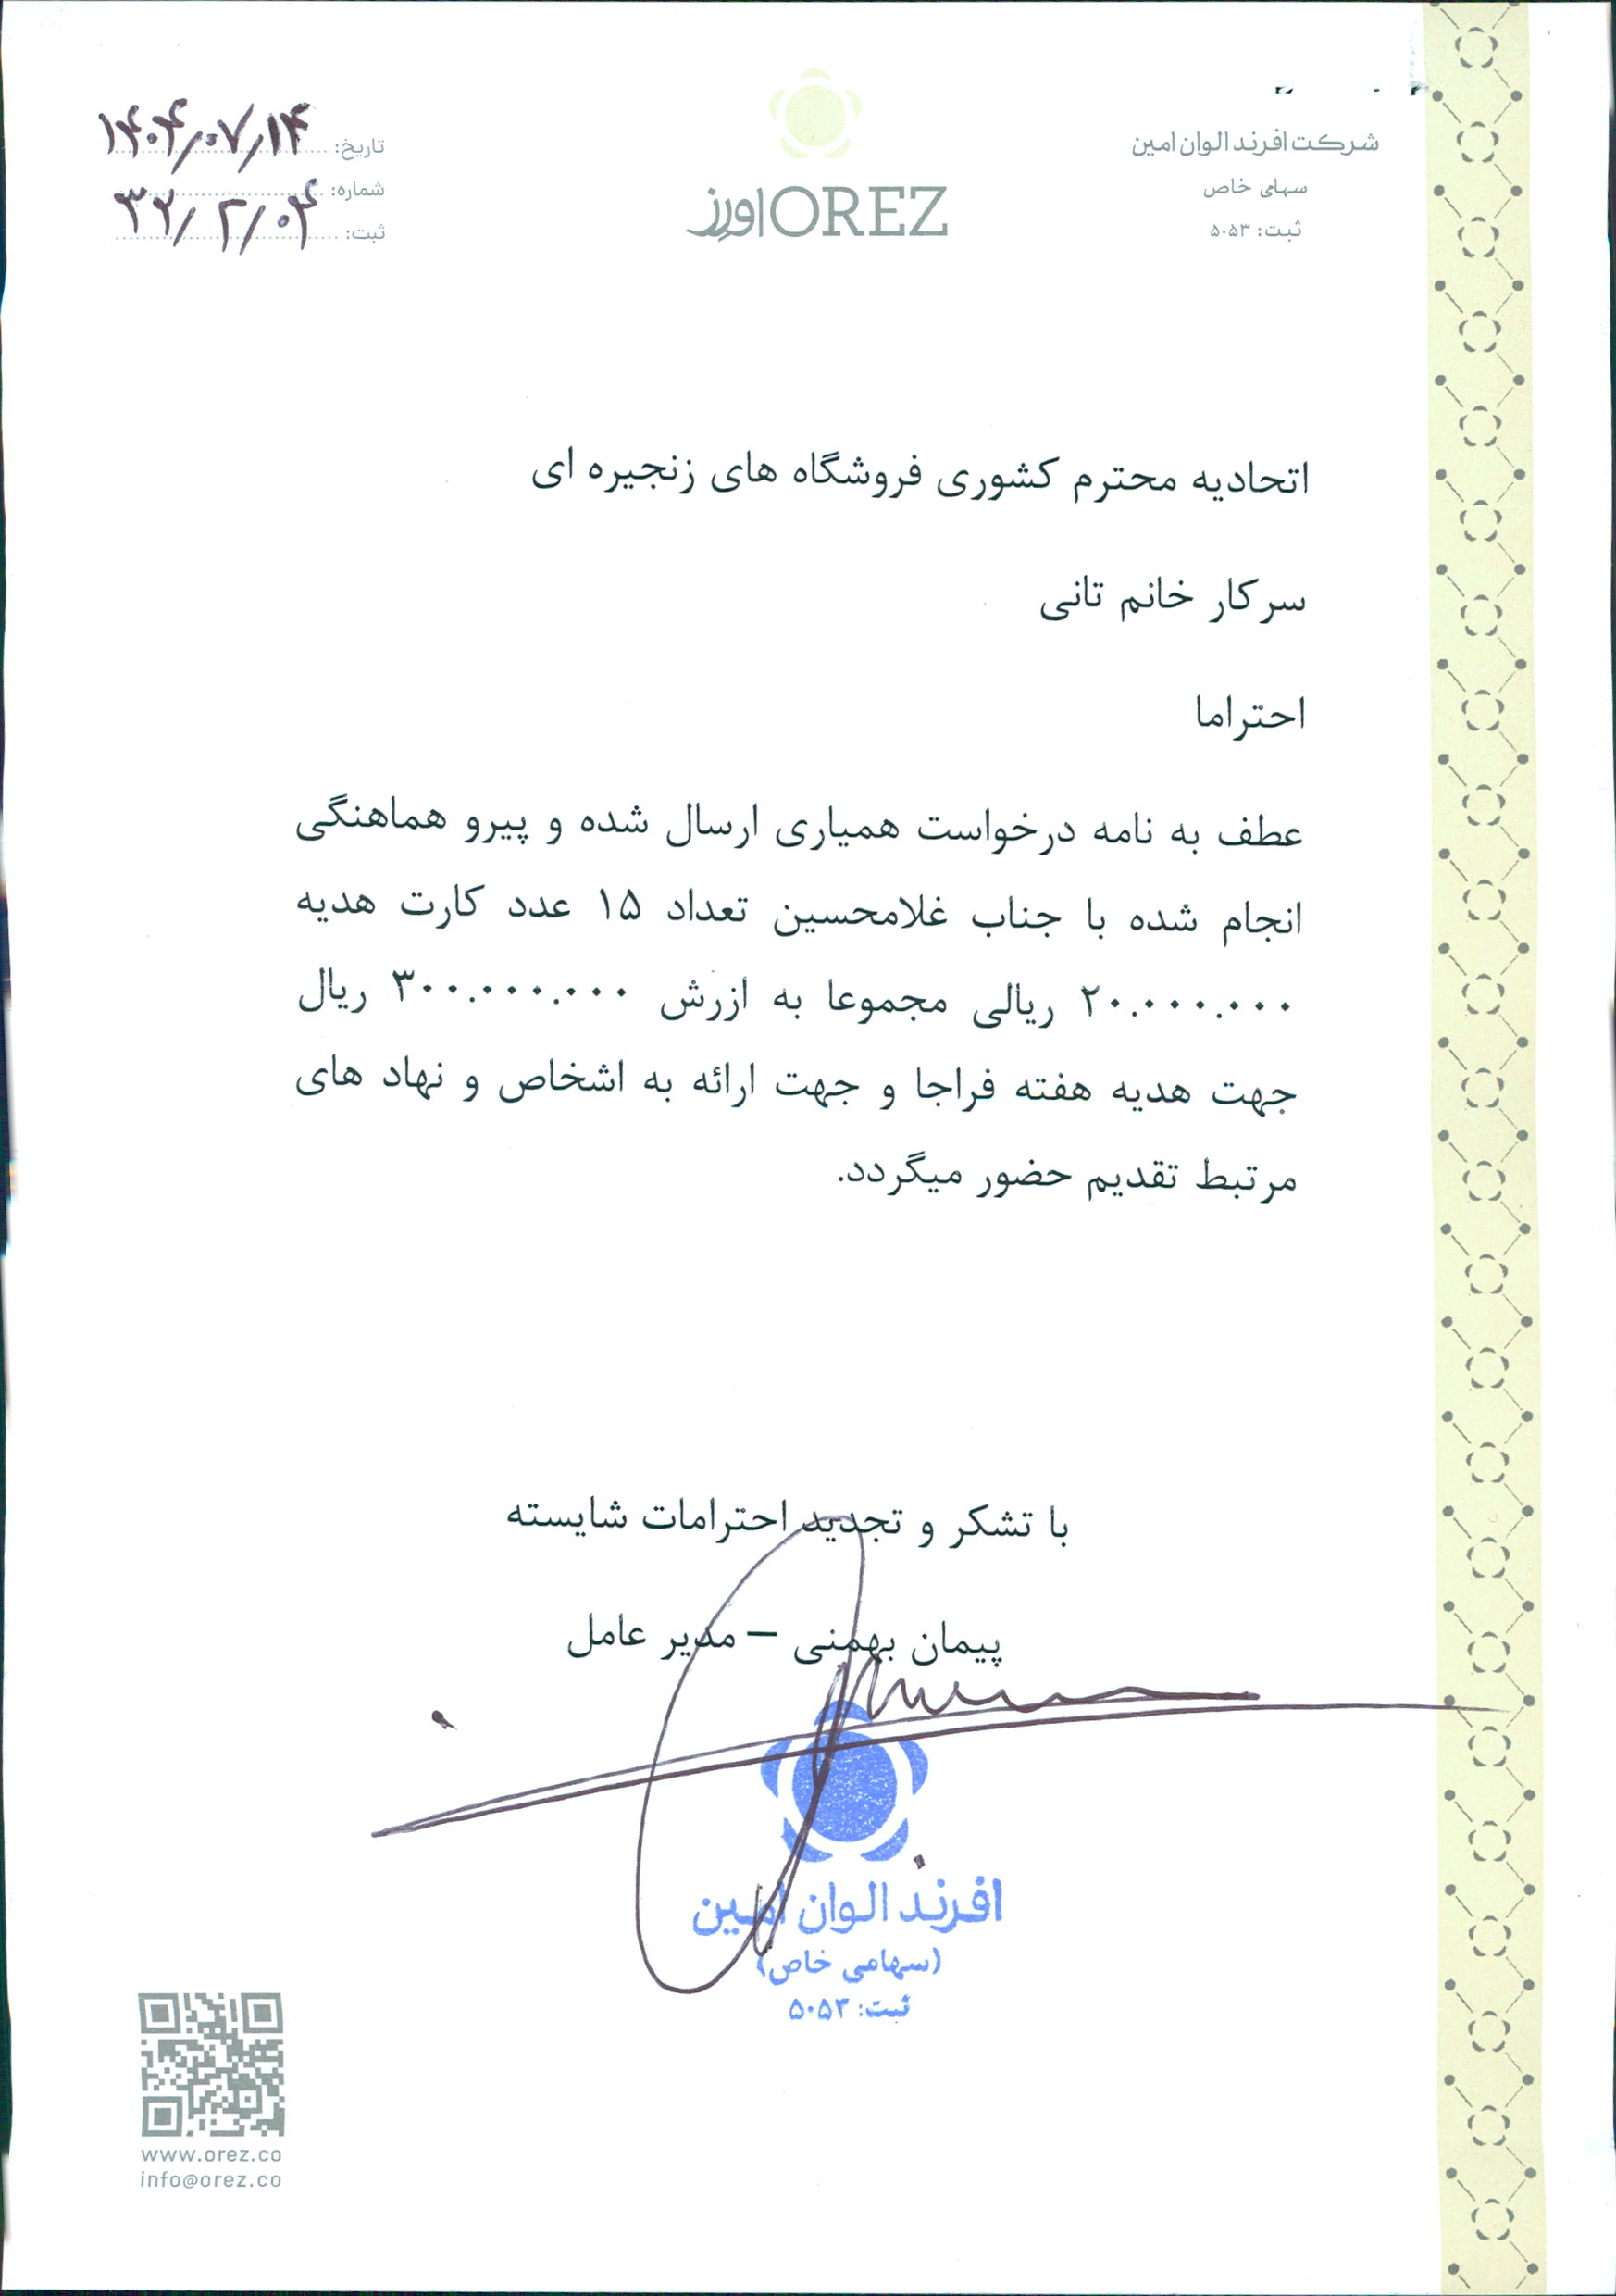 شرکت افرند الوان امین
سهامی خاص
ثبت: ۵۰۵۳
اورز OREZ
تاریخ: ۱۴۰۴/۰۷/۱۴
شماره: ۳۲/۲/۰۴
ثبت:
اتحادیه محترم کشوری فروشگاه های زنجیره ای
سرکار خانم تانی
احتراما
عطف به نامه درخواست همیاری ارسال شده و پیرو هماهنگی
انجام شده با جناب غلامحسین تعداد ۱۵ عدد کارت هدیه
۲۰.۰۰۰.۰۰۰ ریالی مجموعا به ازرش ۳۰۰.۰۰۰.۰۰۰ ریال
جهت هدیه هفته فراجا و جهت ارائه به اشخاص و نهاد های
مرتبط تقدیم حضور میگردد.
با تشکر و تجدید احترامات شایسته
پیمان بهمنی – مدیر عامل
افرند الوان امین
(سهامی خاص)
ثبت: ۵۰۵۳
www.orez.co
info@orez.co